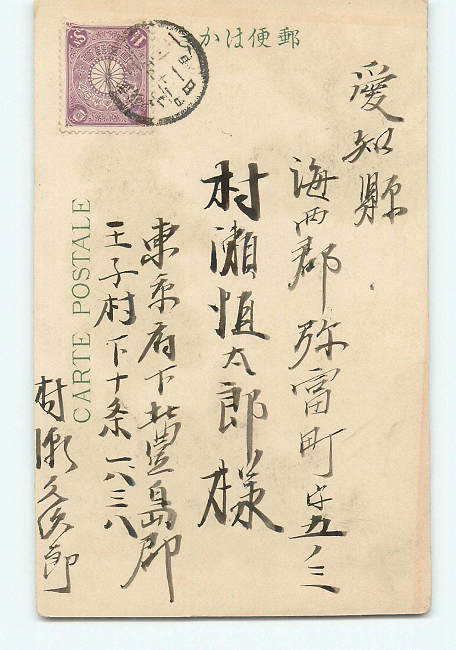 郵便はかき
愛知縣
海西郡弥富町字五ノ三
村瀬恒太郎様
東京府下北豊島郡
王子村下十条一六三八
CARTE POSTALE